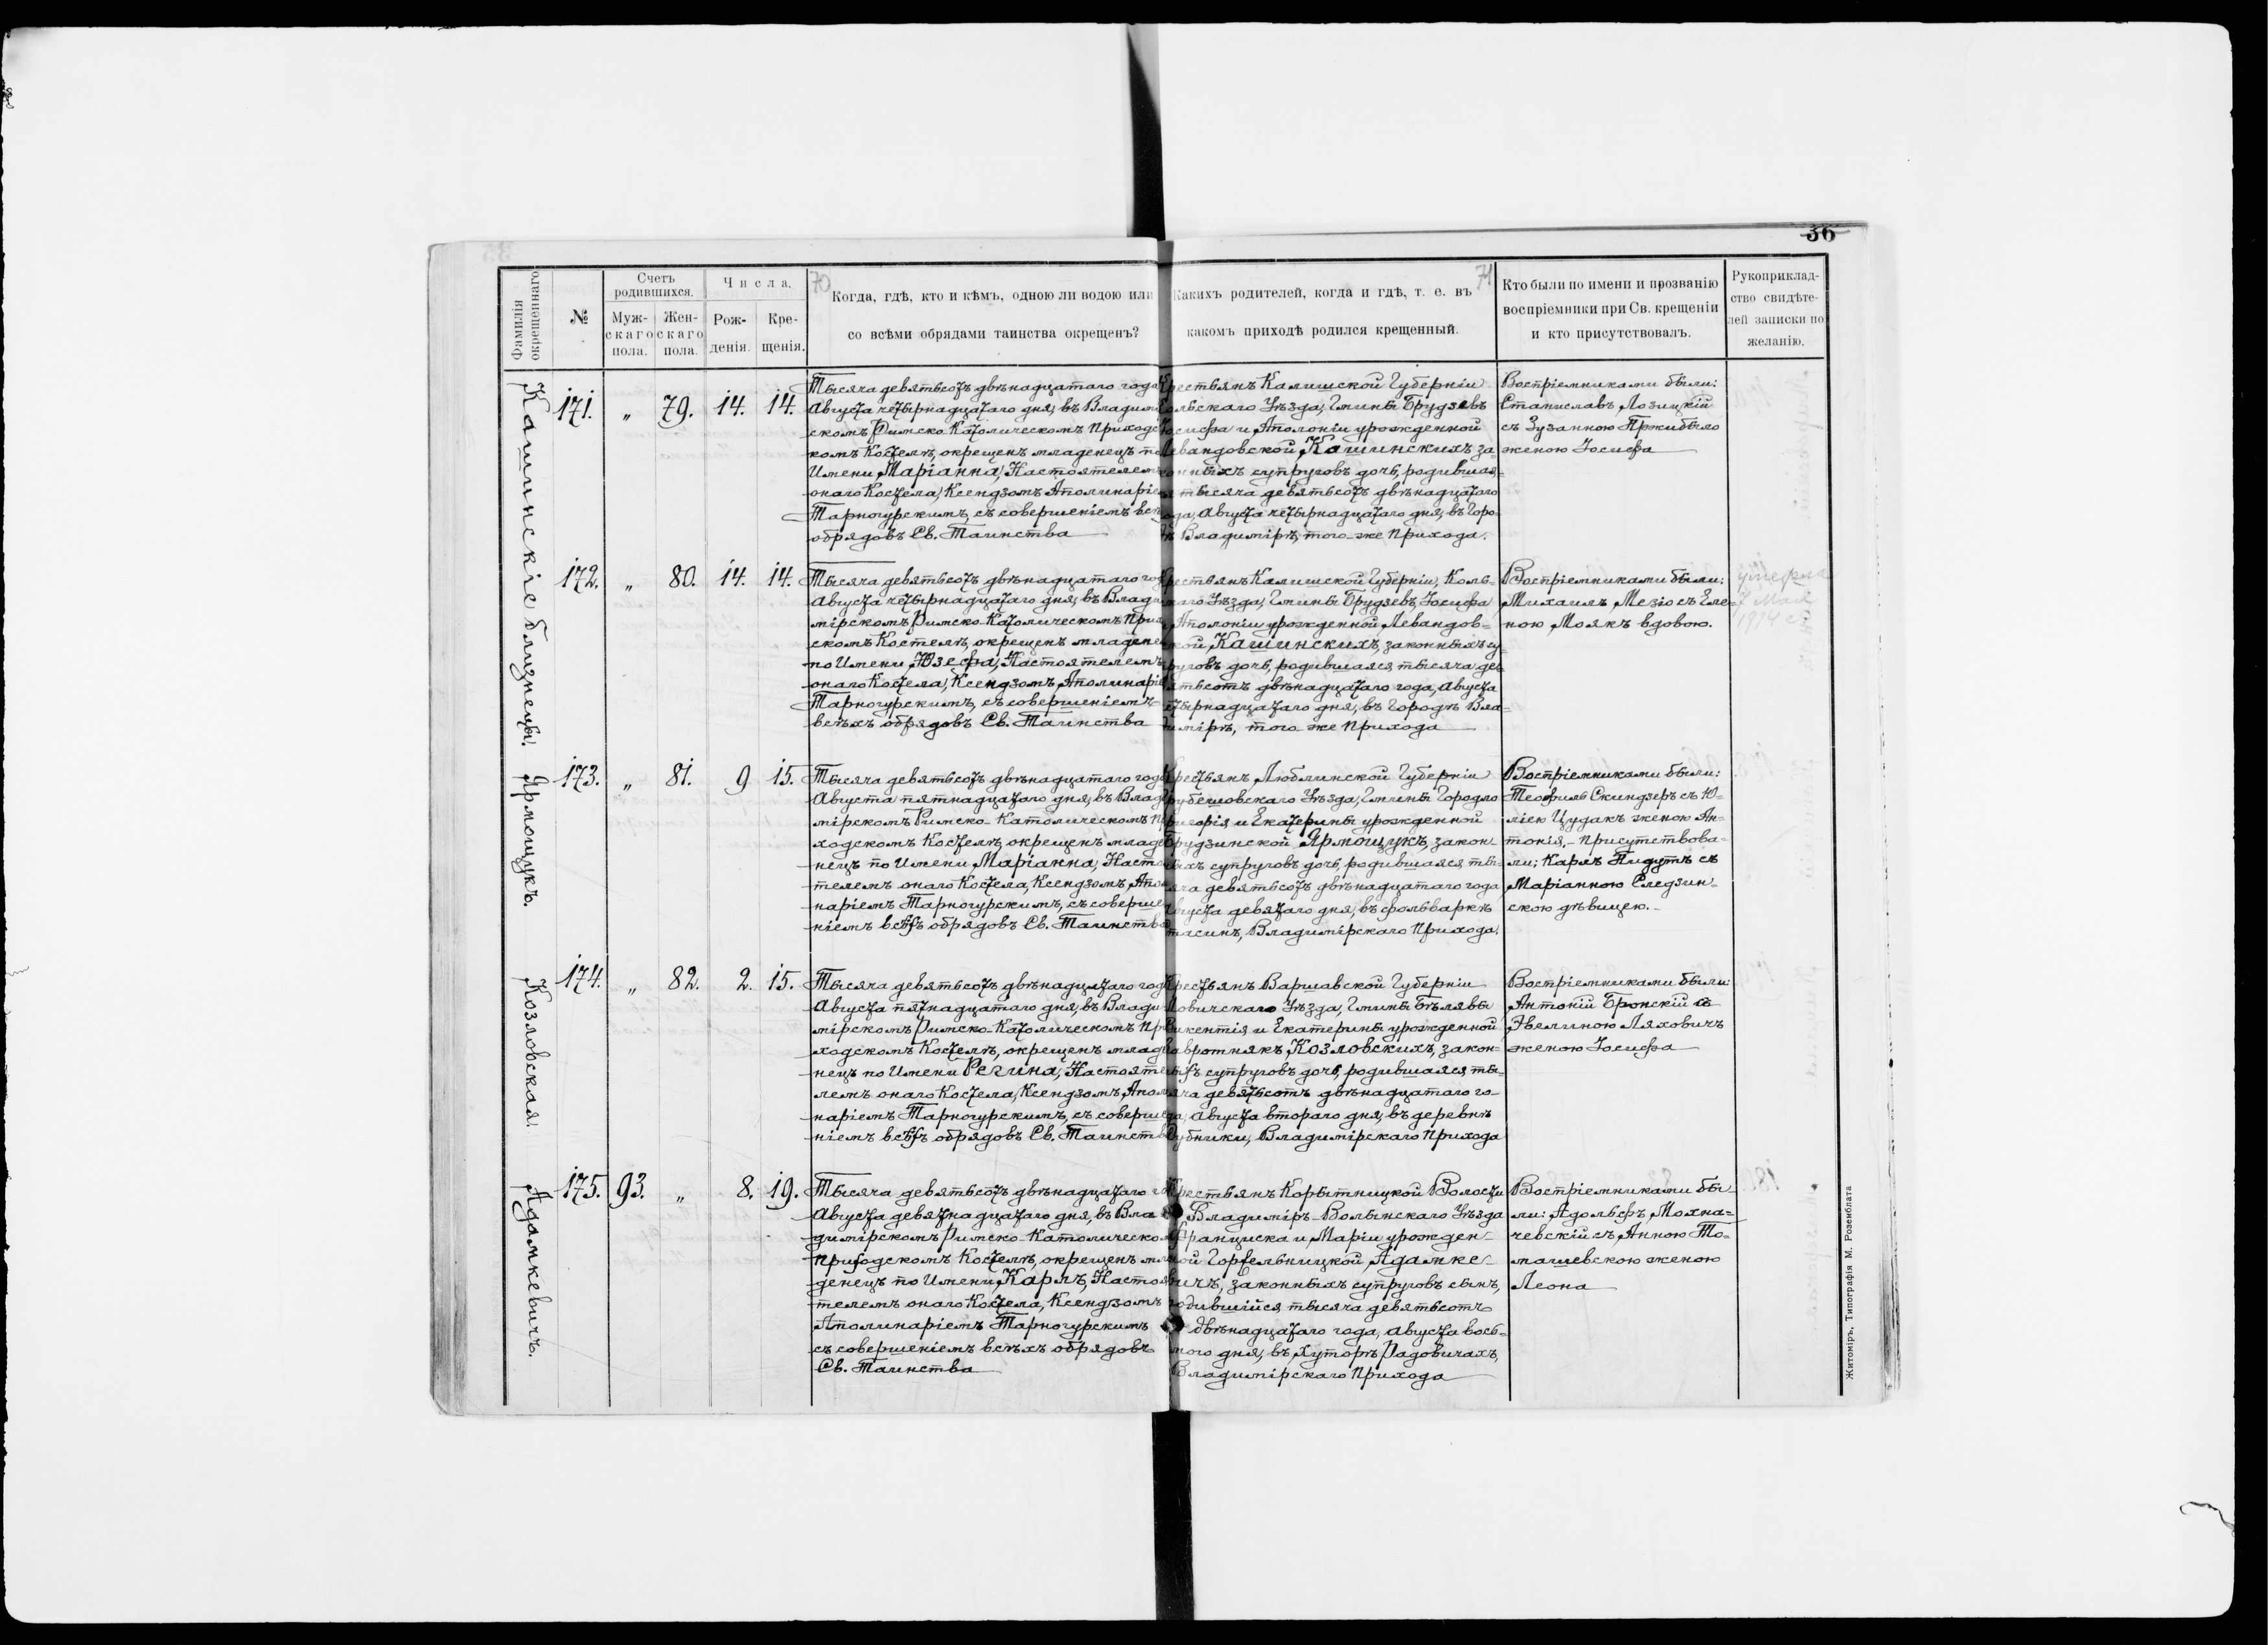 36
Фамилія окрещеннаго
№
Счетъ родившихся.
Мужскаго пола.
Женскаго пола.
Числа.
Рожденія.
Крещенія.
70
Когда, гдѣ, кто и кѣмъ, одною ли водою или
со всѣми обрядами таинства окрещенъ?
71
Какихъ родителей, когда и гдѣ, т. е. въ
какомъ приходѣ родился крещенный.
Кто были по имени и прозванію
воспріемники при Св. крещеніи
и кто присутствовалъ.
Рукоприклад-
ство свидѣте-
лей записки по
желанію.
Кашинскіе близнецы.
171. „ 79. 14. 14.
Тысяча девятьсотъ двѣнадцатаго года
Августа четырнадцатаго дня, въ Владимі
скомъ Римско-Католическомъ Приходс
комъ Костелѣ, окрещенъ младенецъ по
Имени Маріанна, Настоятелемъ
онаго Костела, Ксендзомъ Аполинаріе
Тарногурскимъ, съ совершеніемъ всѣ
обрядовъ Св. Таинства
Крестьянъ Калишской Губерніи
Кольскаго Уѣзда, Гмины Брудзевъ
Іосифа и Аполоніи урожденной
Левандовской, Кашинскихъ за-
конныхъ супруговъ дочь, родившая-
ся тысяча девятьсотъ двѣнадцатаго
года, Августа четырнадцатаго дня, въ Горо-
дѣ Владимірѣ, того-же Прихода.
Воспріемниками были:
Станиславъ Лозицкій
съ Зузанною Пржибыло
женою Іосифа
172. „ 80. 14. 14.
Тысяча девятьсотъ двѣнадцатаго год
Августа четырнадцатаго дня, въ Влади
мірскомъ Римско-Католическомъ Прихо
скомъ Костелѣ, окрещенъ младене
по Имени Юзефа, Настоятелемъ
онаго Костела, Ксендзомъ Аполинаріе
Тарногурскимъ, съ совершеніемъ
всѣхъ обрядовъ Св. Таинства
Крестьянъ Калишской Губерніи, Коль-
скаго Уѣзда, Гмины Брудзевъ, Іосифа
и Аполоніи урожденной Левандов-
ской, Кашинскихъ, законныхъ су-
пруговъ дочь, родившаяся, тысяча дев-
ятьсотъ двѣнадцатаго года, Августа
четырнадцатаго дня, въ Городѣ Вла-
димірѣ, того-же Прихода
Воспріемниками были:
Михаилъ Мезіо съ Еле-
ною Моякъ вдовою.
умерла
7 Мая
1914 г.
Ярмощукъ.
173. „ 81. 9 15.
Тысяча девятьсотъ двѣнадцатаго года
Августа пятнадцатаго дня, въ Влади
мірскомъ Римско-Католическомъ При
ходскомъ Костелѣ, окрещенъ младе
нецъ по Имени Маріанна, Настоя
телемъ онаго Костела, Ксендзомъ Апол
наріемъ Тарногурскимъ, съ соверше
ніемъ всѣхъ обрядовъ Св. Таинства
Крестьянъ Люблинской Губерніи
Грубешовскаго Уѣзда, Гмины Городло
Григорія и Екатерины урожденной
Брудзинской Ярмощукъ, закон-
ныхъ супруговъ дочь, родившаяся ты-
сяча девятьсотъ двѣнадцатаго года
Августа девятаго дня, въ фольваркѣ
тасинъ, Владимірскаго Прихода.
Воспріемниками были:
Теофиль Скиндзеръ съ Ю-
ліею Цудакъ женою Ан-
тонія, - присутствова-
ли; Карлъ Пидутъ съ
Маріанною Следзин-
скою дѣвицею.-
Козловская.
174. „ 82. 2. 15.
Тысяча девятьсотъ двѣнадцатаго год
Августа пятнадцатаго дня, въ Влади
мірскомъ Римско-Католическомъ При
ходскомъ Костелѣ, окрещенъ младе
нецъ по Имени Регина, Настояте
лемъ онаго Костела, Ксендзомъ Аполи
наріемъ Тарногурскимъ, съ соверше
ніемъ всѣхъ обрядовъ Св. Таинства
Крестьянъ Варшавской Губерніи
Ловичскаго Уѣзда, Гмины Бѣлявы
Викентія и Екатерины урожденной
Гавротнякъ, Козловскихъ, закон-
ныхъ супруговъ дочь, родившаяся ты-
сяча девятьсотъ двѣнадцатаго го-
да, Августа втораго дня, въ деревнѣ
Дубники, Владимірскаго Прихода
Воспріемниками были:
Антоній Бронскій съ
Эвелиною Ляховичъ
женою Іосифа
Адамкевичъ.
175. 93. „ 8. 19.
Тысяча девятьсотъ двѣнадцатаго го
Августа девятнадцатаго дня, въ Вла
димірскомъ Римско-Католическом
Приходскомъ Костелѣ, окрещенъ мла
денецъ по Имени Карлъ, Настоя
телемъ онаго Костела, Ксендзомъ
Аполинаріемъ Тарногурскимъ
съ совершеніемъ всѣхъ обрядовъ
Св. Таинства
Крестьянъ Корытницкой Волости
Владиміръ-Волынскаго Уѣзда
Франциска и Маріи урожден-
ной Горгельницкой, Адамке-
вичъ, законныхъ супруговъ сынъ,
родившійся тысяча девятьсотъ
двѣнадцатаго года, Августа вось-
мого дня, въ Хуторѣ Радовичахъ,
Владимірскаго Прихода
Воспріемниками бы-
ли: Адольфъ Мохна-
чевскій съ Анною То-
машевскою женою
Леона
Житоміръ, Типографія М. Розенблата